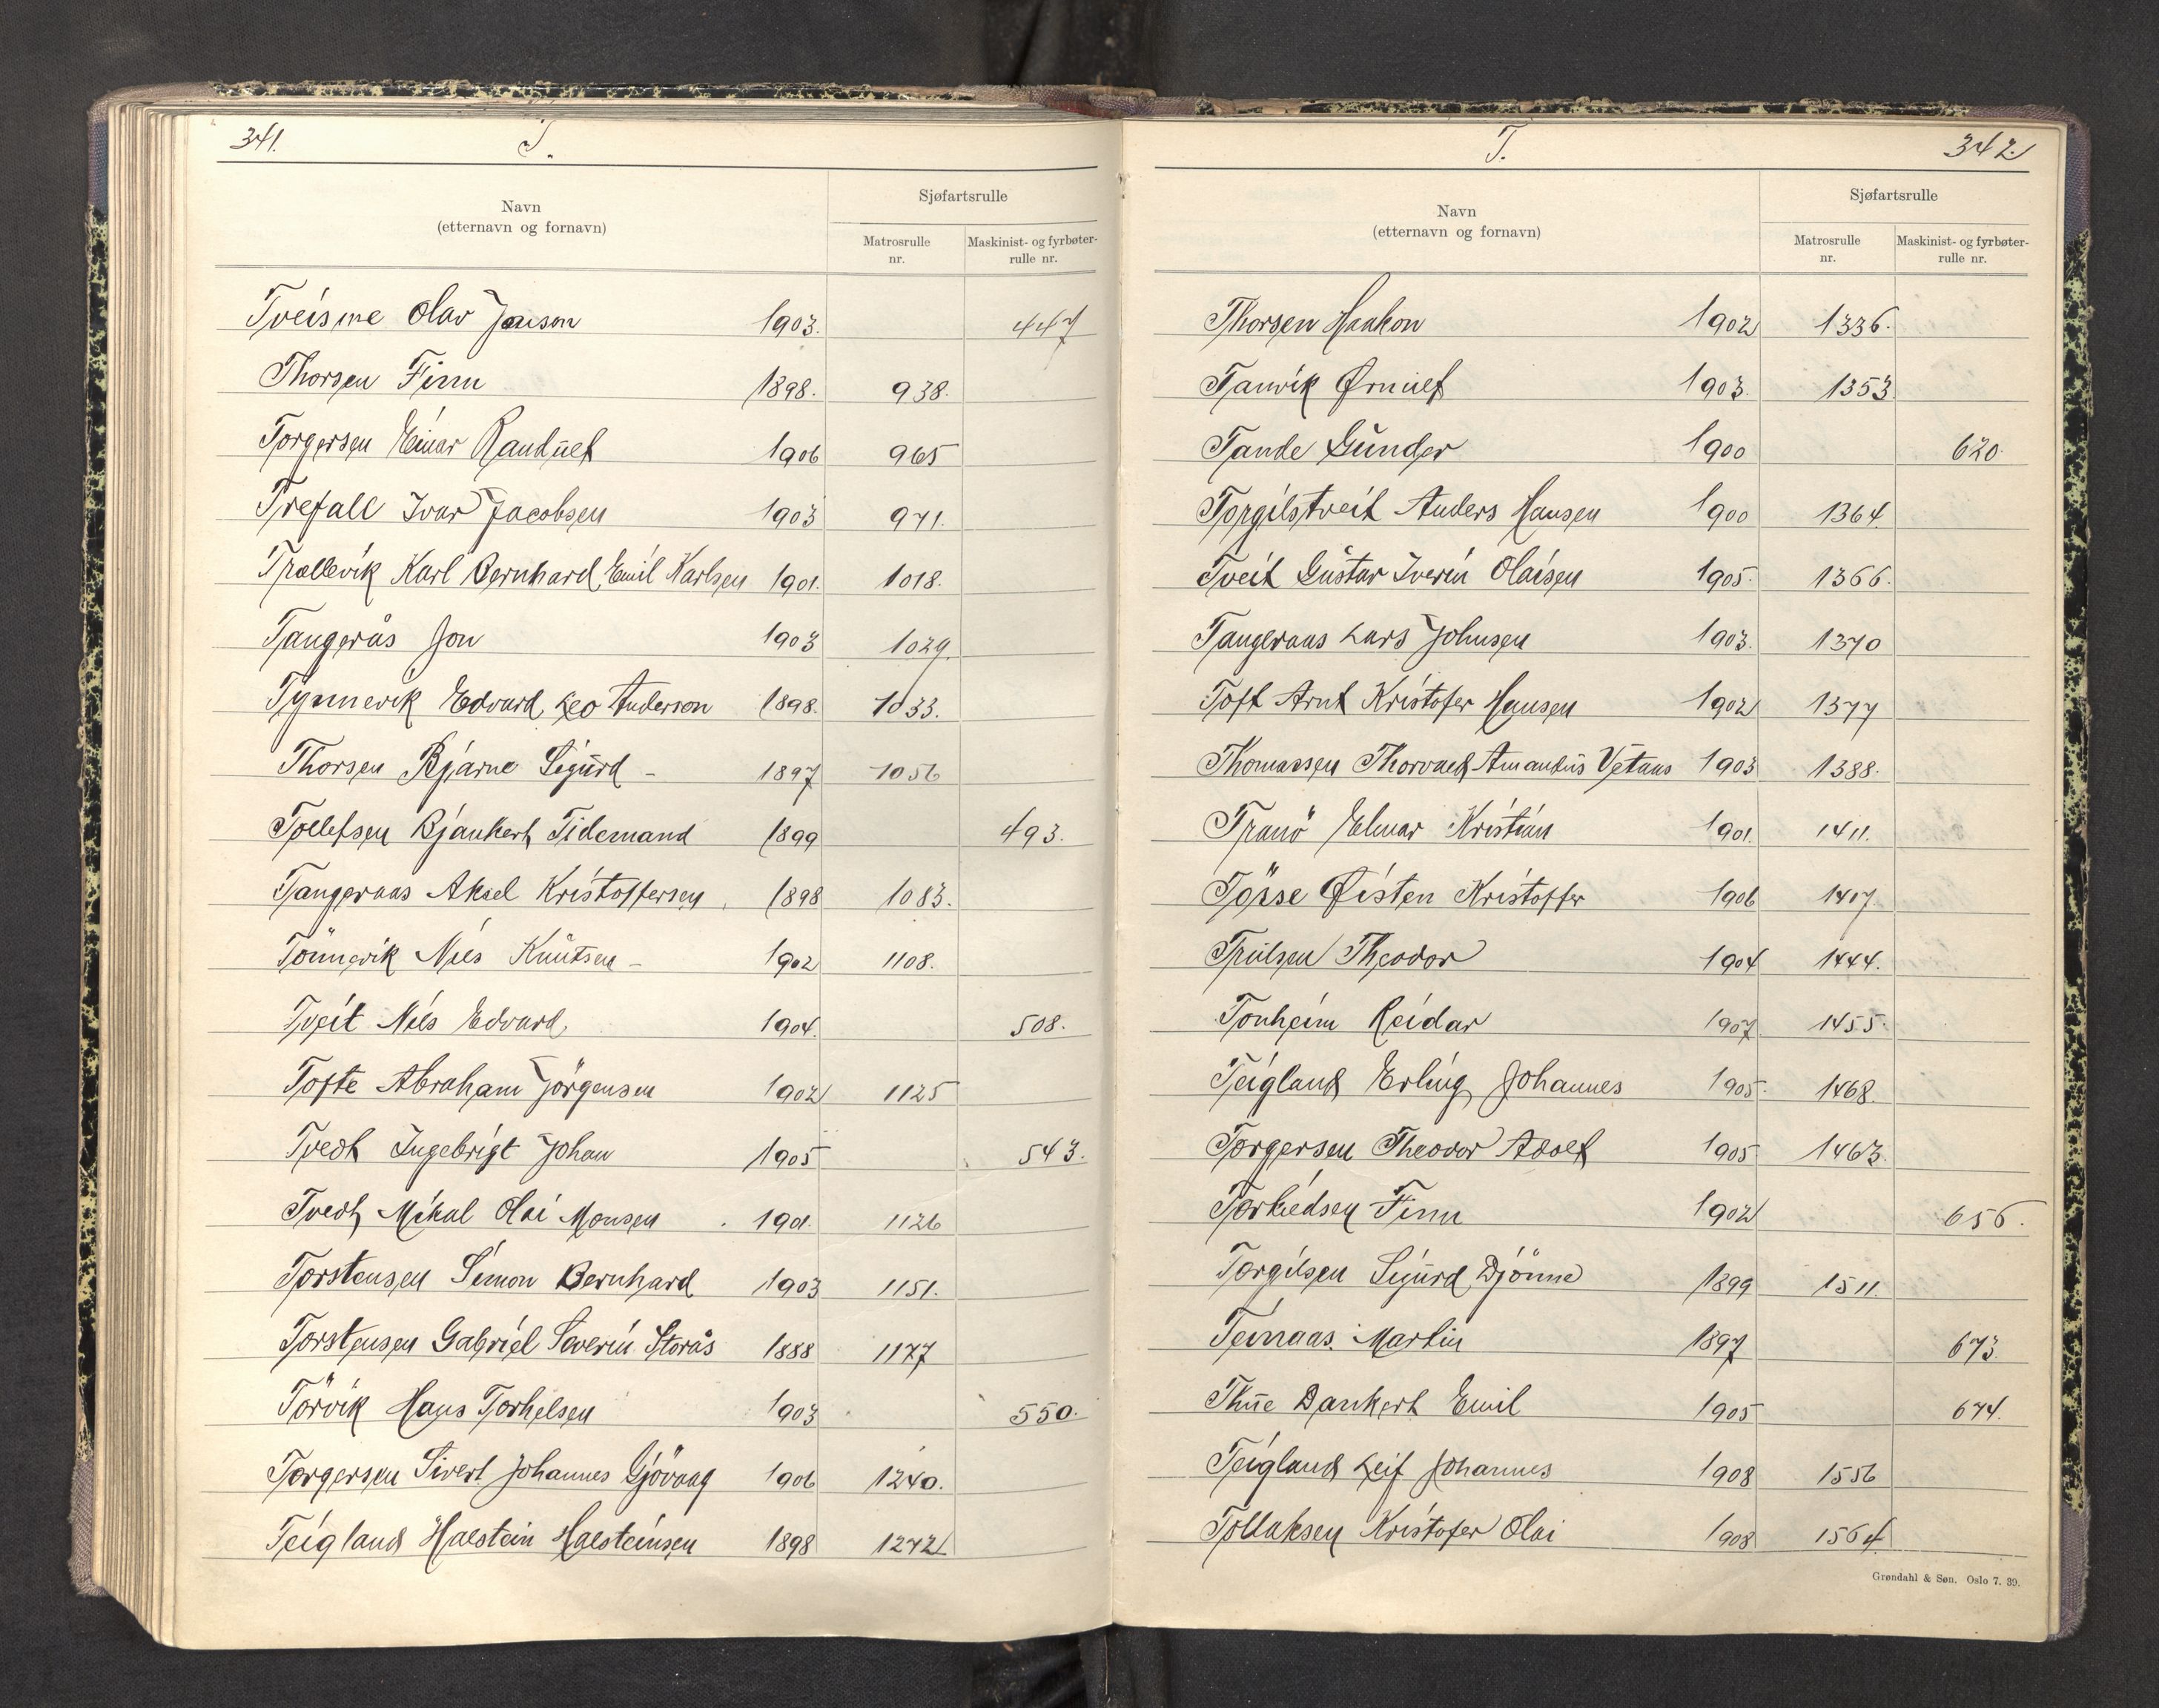 341. T.
Sjøfartsrulle
Navn
(etternavn og fornavn)
Matrosrulle nr. Maskinist- og fyrbøter-rulle nr.
Tveisme Olav Jonson 1903. 447
Thorsen Finn 1898. 938.
Torgersen Einar Randulf 1906 965
Trefall Ivar Jacobsen 1903 971.
Trællevik Karl Bernhard Emil Karlsen 1901. 1018.
Tangerås Jon 1903 1029.
Tynnevik Edvard Leo Anderson 1898. 1033.
Thorsen Bjarne Sigurd - 1897 1056
Tollefsen Bjankert Tidemand 1899 493.
Tangeraas Aksel Kristoffersen 1898 1083.
Tönnevik Nils Knutsen - 1902 1108.
Tveit Nils Edvard 1904. 508.
Tofte Abraham Jörgensen 1902 1125
Tvedt Ingebrigt Johan 1905 543.
Tvedt Mikal Olai Monsen 1901. 1126
Torstensen Simon Bernhard 1903 1151.
Torstensen Gabriel Severin Storås 1888 1177
Törvik Hans Torkelsen 1903 550.
Torgersen Sivert Johannes Gjövaag 1906 1240.
Teigland Halstein Halsteinsen 1898 1272
T. 342
Sjøfartsrulle
Navn
(etternavn og fornavn)
Matrosrulle nr. Maskinist- og fyrbøter-rulle nr.
Thorsen Haakon 1902 1336.
Tanvik Ørnulf 1903. 1353
Tande Gunder 1900 620
Torgilstveit Anders Hansen 1900 1364
Tveit Gustav Iverin Olaisen 1905. 1366.
Tangeraas Lars Johnsen 1903. 1370
Toft Arnt Kristofer Hansen 1902 1377
Thomassen Thorvald Amandus Vetaas 1903 1388.
Tranö Elmar Kristian 1901. 1411.
Tösse Øisten Kristoffer 1906 1417.
Trulsen Theodor 1904 1444.
Tonheim Reidar 1907 1455.
Teigland Erling Johannes 1905. 1468.
Torgersen Theodor Adolf 1905 1463.
Torkildsen Finn 1902 656.
Torgilsen Sigurd Djönne 1899 1511.
Teinaas. Martin 1897 673.
Thue Dankert Emil 1905 674.
Teigland Leif Johannes 1908 1556
Tollaksen Kristofer Olai 1908 1564
Grøndahl & Søn. Oslo 7. 39.